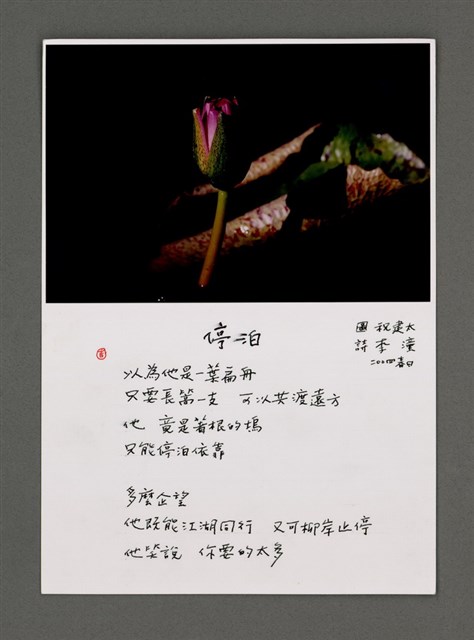 停泊
圖 祝建太
詩 李潼
二〇〇四春日
以為他是一葉扁舟
只要長篙一支 可以共渡遠方
他 竟是著根的塢
只能停泊依靠
多麼企望
他既能江湖同行 又可柳岸止停
他笑說 你要的太多